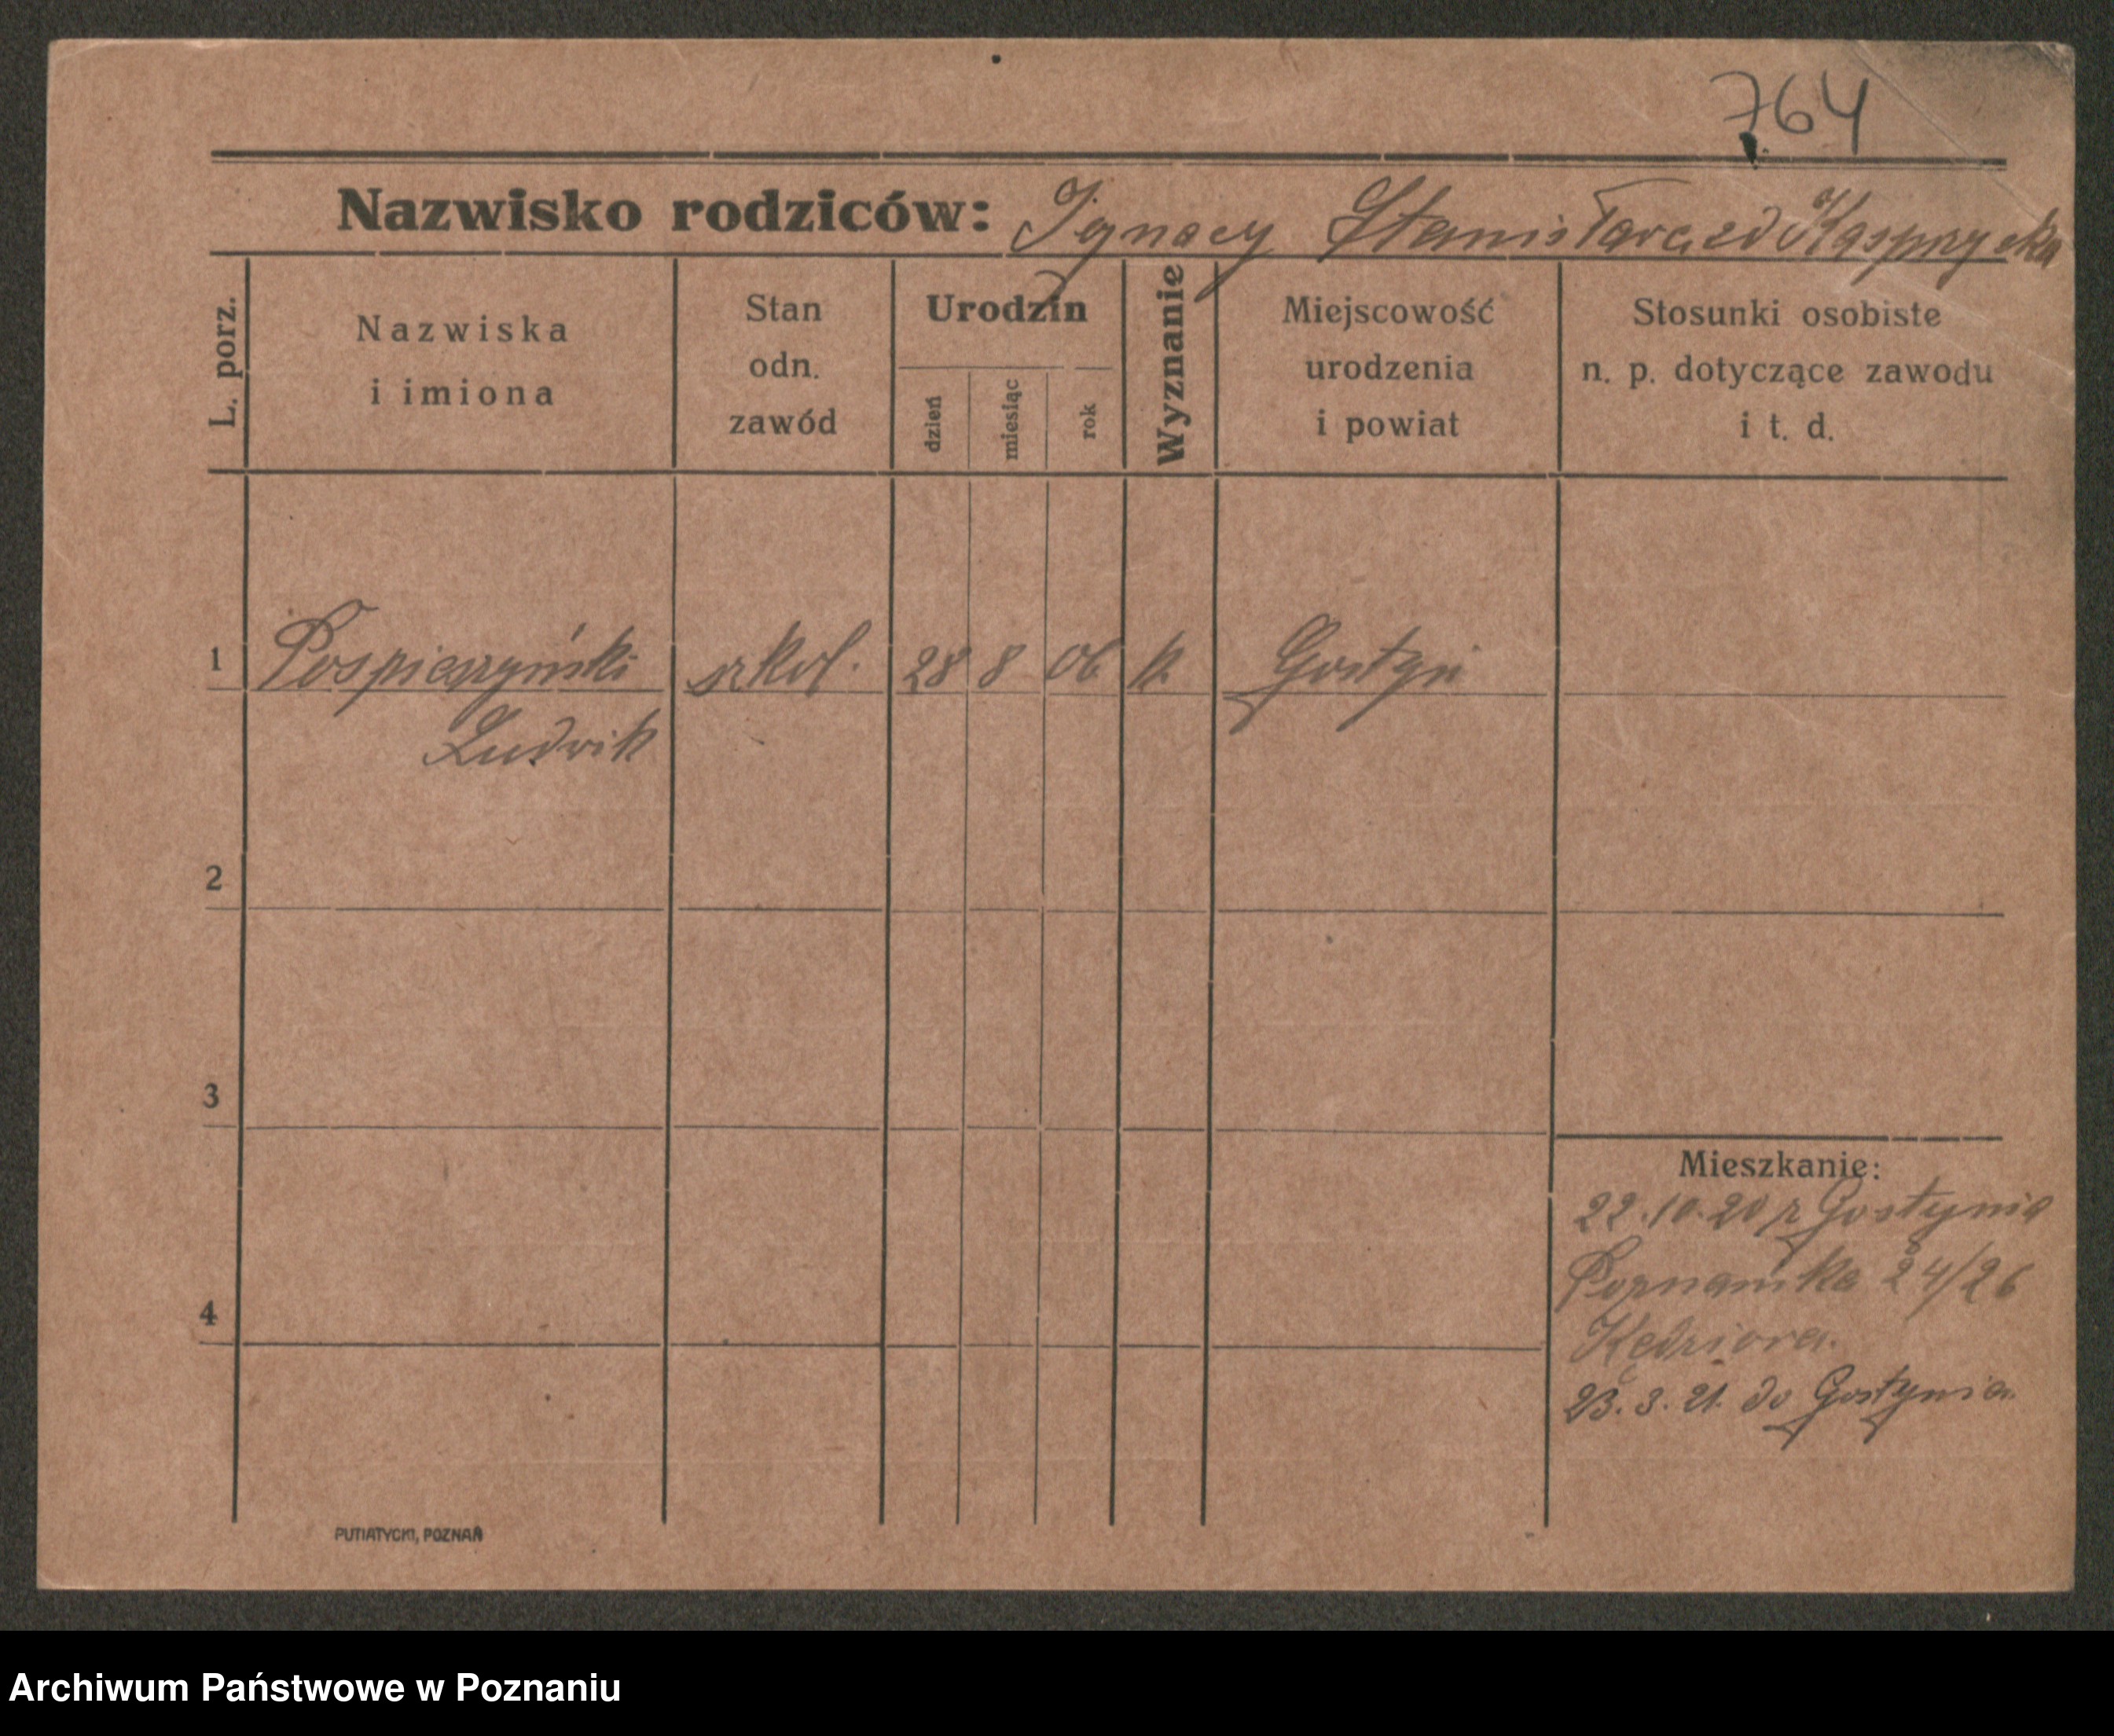 764
Nazwisko rodziców: Ignacy Stanisława zd Kasprzycka
L. porz.
Nazwiska
i imiona
Stan
odn.
zawód
Urodzin
dzień
miesiąc
rok
Wyznanie
Miejscowość
urodzenia
i powiat
Stosunki osobiste
n. p. dotyczące zawodu
i t. d.
1 Pospieszyński szkol. 28 8 06 k. Gostyń
Ludwik
2
3
4
Mieszkanie:
22.10.20 z Gostynia
Poznańska 24/26
Kędziora.
23.3.21. do Gostynia
PUTIATYCKI, POZNAŃ
Archiwum Państwowe w Poznaniu